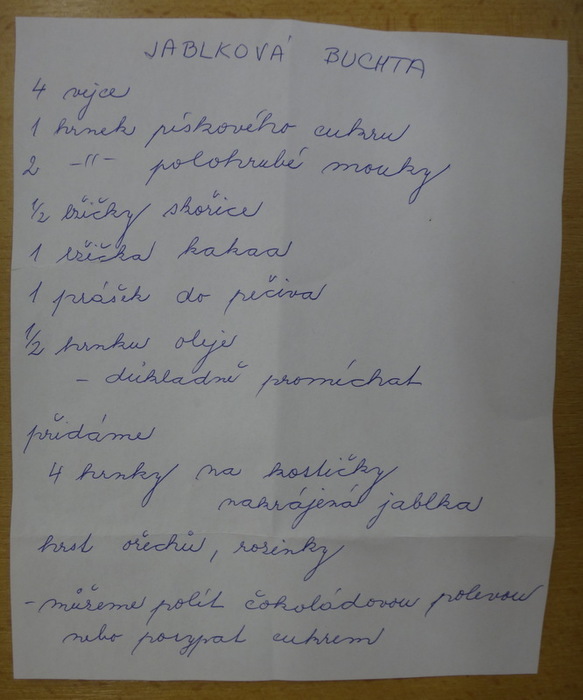 JABLKOVÁ BUCHTA
4 vejce
1 hrnek pískového cukru
2 -"- polohrubé mouky
1/2 lžičky skořice
1 lžička kakaa
1 prášek do pečiva
1/2 hrnku oleje
- důkladně promíchat
přidáme
4 hrnky na kostičky
nakrájená jablka
hrst ořechů, rozinky
- můžeme polít čokoládovou polevou
nebo posypat cukrem